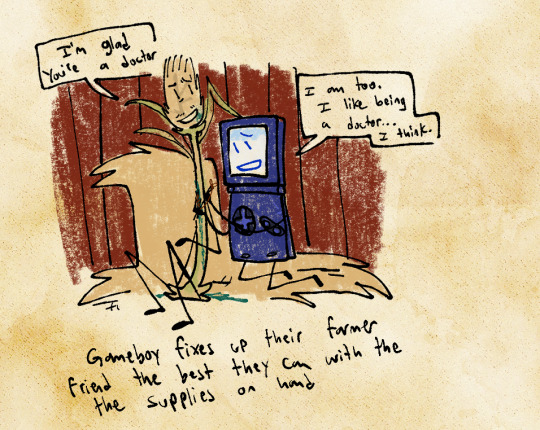 I'm glad
You're a doctor
I am too.
I like being
a doctor...
I think.
Gameboy fixes up their farmer
friend the best they can with the
the supplies on hand